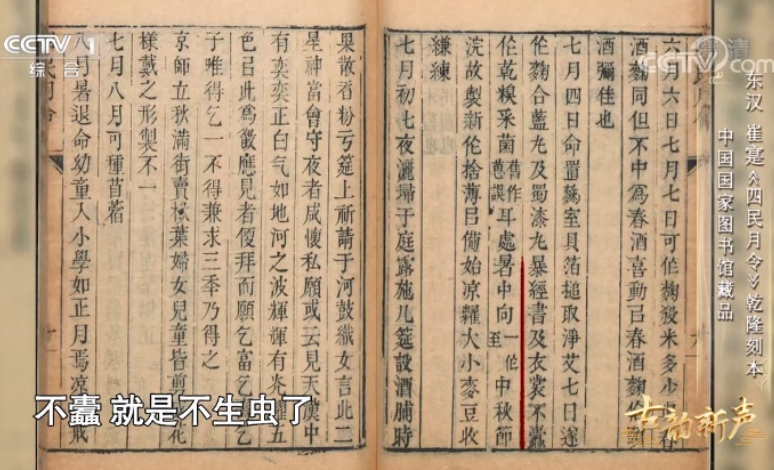 六月六日七月七日可作麴发米多少与
酒麴同但不中為春酒喜動㠯春酒麴作
酒彌佳也
七月四日命置蠶室具箔搥取淨艾七日遂
作麴合藍丸及蜀漆丸暴經書及衣裳不蠹
作乾糗采葈舊作葸誤耳處暑中向至一作中秋節
浣故製新作袷薄㠯備始凉糶大小麥豆收
縑練
七月初七夜灑埽于庭露施几筵設酒脯時
果散香粉于筵上祈請于河鼓織女言此二
星神當會守夜者咸懷私願或云見天漢中
有奕奕正白气如地河之波輝輝有光耀五
色㠯此爲徵應見者便拜而願乞富乞
子唯得乞一不得兼求三季乃得之
京師立秋滿街賣楸葉婦女兒童皆剪花
樣戴之形製不一
七月八月可種苜蓿
八月暑退命幼童入小學如正月焉凉
四民月令
CCTV 1
综合
CCTV.com
东汉 崔寔《四民月令》乾隆刻本
中国国家图书馆藏品
古韵新声
不蠹 就是不生虫了